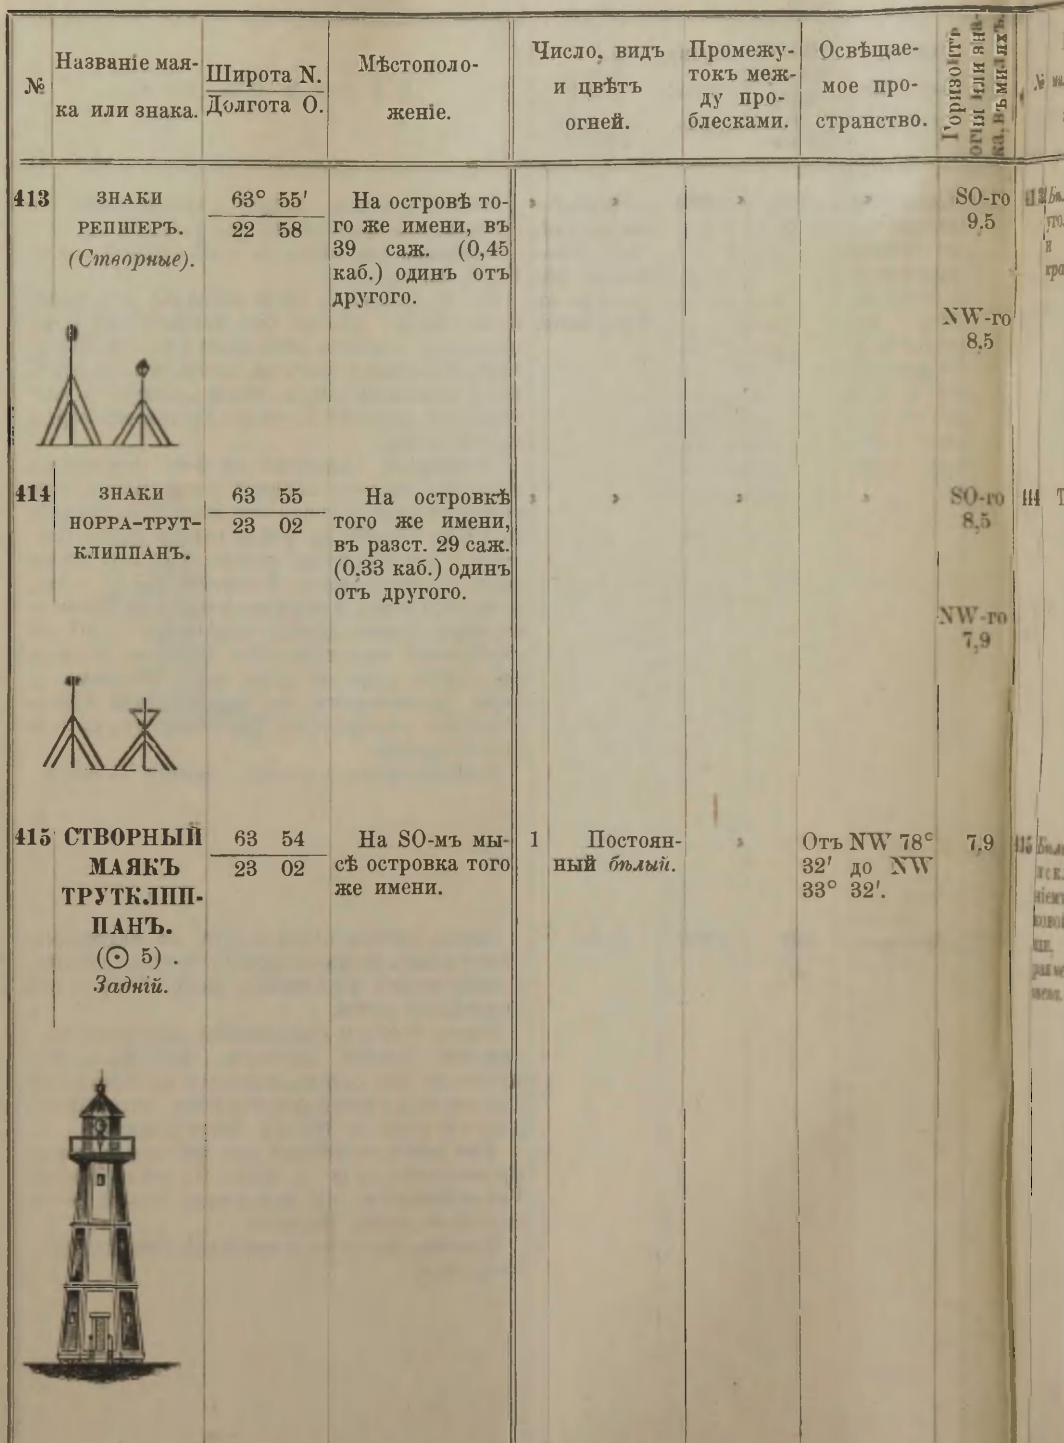 №
Названіе мая-
ка или знака.
Широта N.
Долгота O.
Мѣстополо-
женіе.
Число, видъ
и цвѣтъ
огней.
Промежу-
токъ меж-
ду про-
блесками.
Освѣщае-
мое про-
странство.
Горизонтъ
огня или зна-
ка, въ миляхъ.
413
ЗНАКИ
РЕПШЕРЪ.
(Створные).
63° 55′
22 58
На островѣ то-
го же имени, въ
39 саж. (0,45
каб.) одинъ отъ
другого.
» » » »
SO-го
9.5
NW-го
8.5
414
ЗНАКИ
НОРРА-ТРУТ-
КЛИППАНЪ.
63 55
23 02
На островкѣ
того же имени,
въ разст. 29 саж.
(0.33 каб.) одинъ
отъ другого.
» » » »
SO-го
8,5
NW-го
7,9
415
СТВОРНЫЙ
МАЯКЪ
ТРУТКЛИП-
ПАНЪ.
(⊙ 5) .
Задній.
63 54
23 02
На SO-мъ мы-
сѣ островка того
же имени.
1
Постоян-
ный бѣлый.
»
Отъ NW 78°
32′ до NW
33° 32′.
7,9
№
414
415